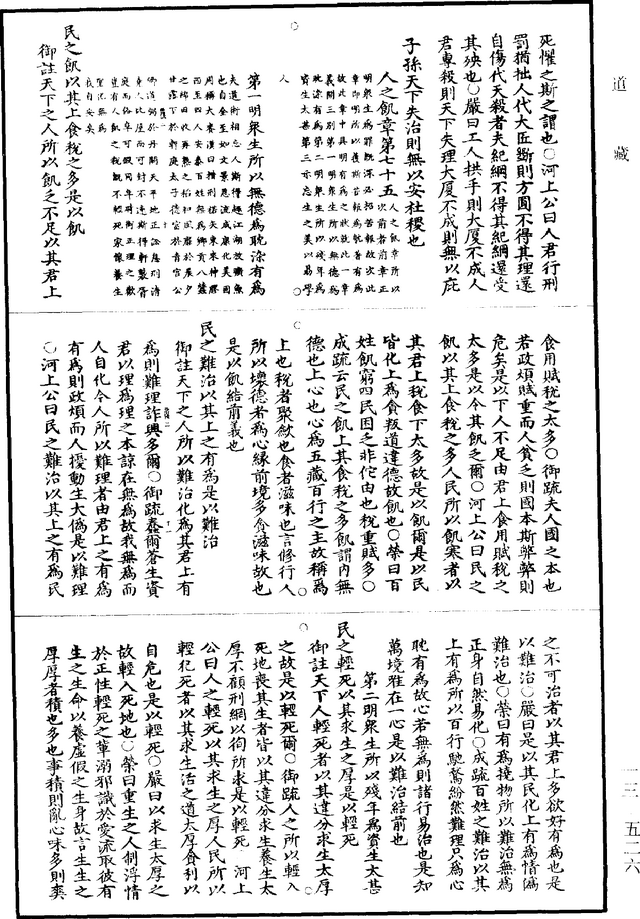 道藏
一三·五二六
死懼之斯之謂也○河上公曰人君行刑
罰猶拙人代大匠斲則方圓不得其理還
自傷代天殺者失紀綱不得其紀綱還受
其殃也○嚴曰工人拱手則大廈不成人
君專殺則天下失理大廈不成則無以庇
子孫天下失治則無以安社稷也
人之飢章第七十五
人之飢章所以次前者前章正
明衆生爲罪既深必招苦報故次此
章即明所以獲斯苦報爲耽著有爲
故此章中具明有爲之狀就此一章
義開三別第一明衆生所以無德爲
耽染有爲第二明衆生所以殘年爲
資生太甚第三示忘生之美以勗學
人
第一明衆生所以無德爲耽染有爲
民之飢以其上食稅之多是以飢
御註天下之人所以飢乏不足以其君上
食用賦稅之太多○御疏夫人國之本也
若政煩賦重而人貧乏則國本斯弊弊則
危矣是以下人不足由君上食用賦稅之
太多是以令其飢乏爾○河上公曰民之
飢以其上食稅之多人民所以飢寒者以
其君上稅食下太多故是以飢爾是以民
皆化上爲貪叛道違德故飢也○榮曰百
姓飢窮四民困乏非佗由也稅重賦多○
成疏云民之飢上其食稅之多飢謂內無
德也上心也心爲五藏百行之主故稱爲
上也稅者聚斂也食者滋味也言修行人
所以壞德者爲心緣前境多貪滋味故也
是以飢結前義也
民之難治以其上之有爲是以難治
御註天下之人所以難治化爲其君上有
爲則難理詐興多爾○御疏蠢爾蒼生資
君以理爲理之本諒在無爲故我無爲而
人自化今人所以難理者由君上之有爲
有爲則政煩而人擾動生大僞是以難理
○河上公曰民之難治以其上之有爲民
之不可治者以其君上多欲好有爲也是
以難治○嚴曰是以其民化上有爲情僞
難治也○榮曰有爲撓物所以難治無爲
正身自然易化○成疏百姓之難治以其
上有爲所以百行馳騖紛然難理只爲心
耽有爲故心若無爲則諸行易治也是知
萬境雖在一心是以難治結前也
第二明衆生所以殘年爲資生太甚
民之輕死以其求生之厚是以輕死
御註天下人輕死者以其違分求生太厚
之故是以輕死爾○御疏人之所以輕入
死地喪其生者皆以其違分求生養生太
厚不顧刑網以徇所求是以輕死○河上
公曰人之輕死以其求生之厚人民所以
輕犯死者以其求生活之道太厚貪利以
自危也是以輕死○嚴曰以求生太厚之
故輕入死地也○榮曰重生之人制浮情
於正性輕死之輩溺邪識於愛流取彼有
生之生命以養虛假之生身故言生生之
厚厚者積也多也事積則亂心味多則爽